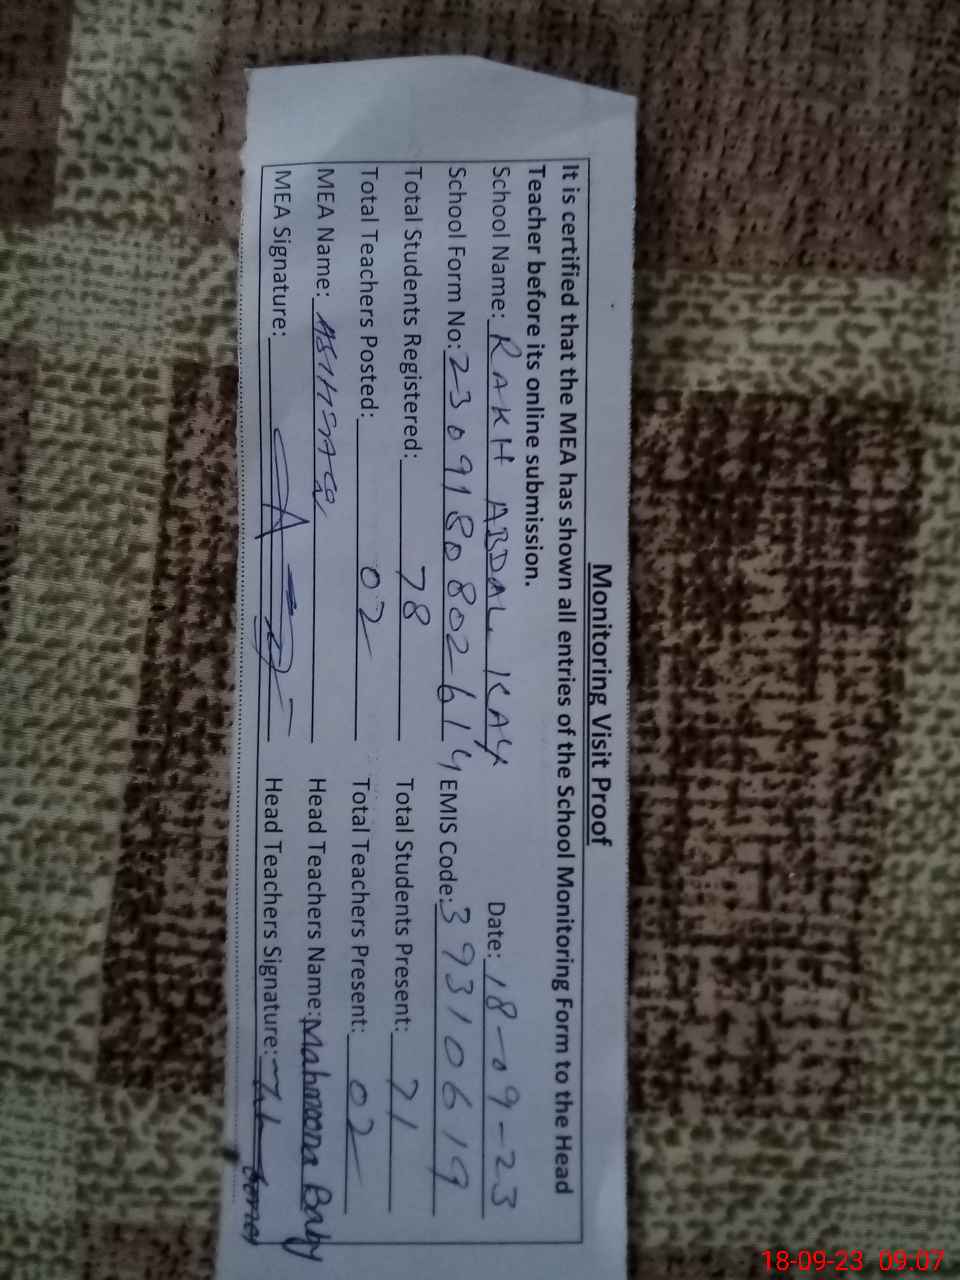 Monitoring Visit Proof
It is certified that the MEA has shown all entries of the School Monitoring Form to the Head
Teacher before its online submission.
School Name: RAKH ABDAL. KAY Date: 18-09-23
School Form No: 2309180802-614 EMIS Code: 39310619
Total Students Registered: 78 Total Students Present: 71
Total Teachers Posted: 02 Total Teachers Present: 02
MEA Name: Head Teachers Name: Mahmoona Baby
MEA Signature: Head Teachers Signature:
18-09-23 09:07